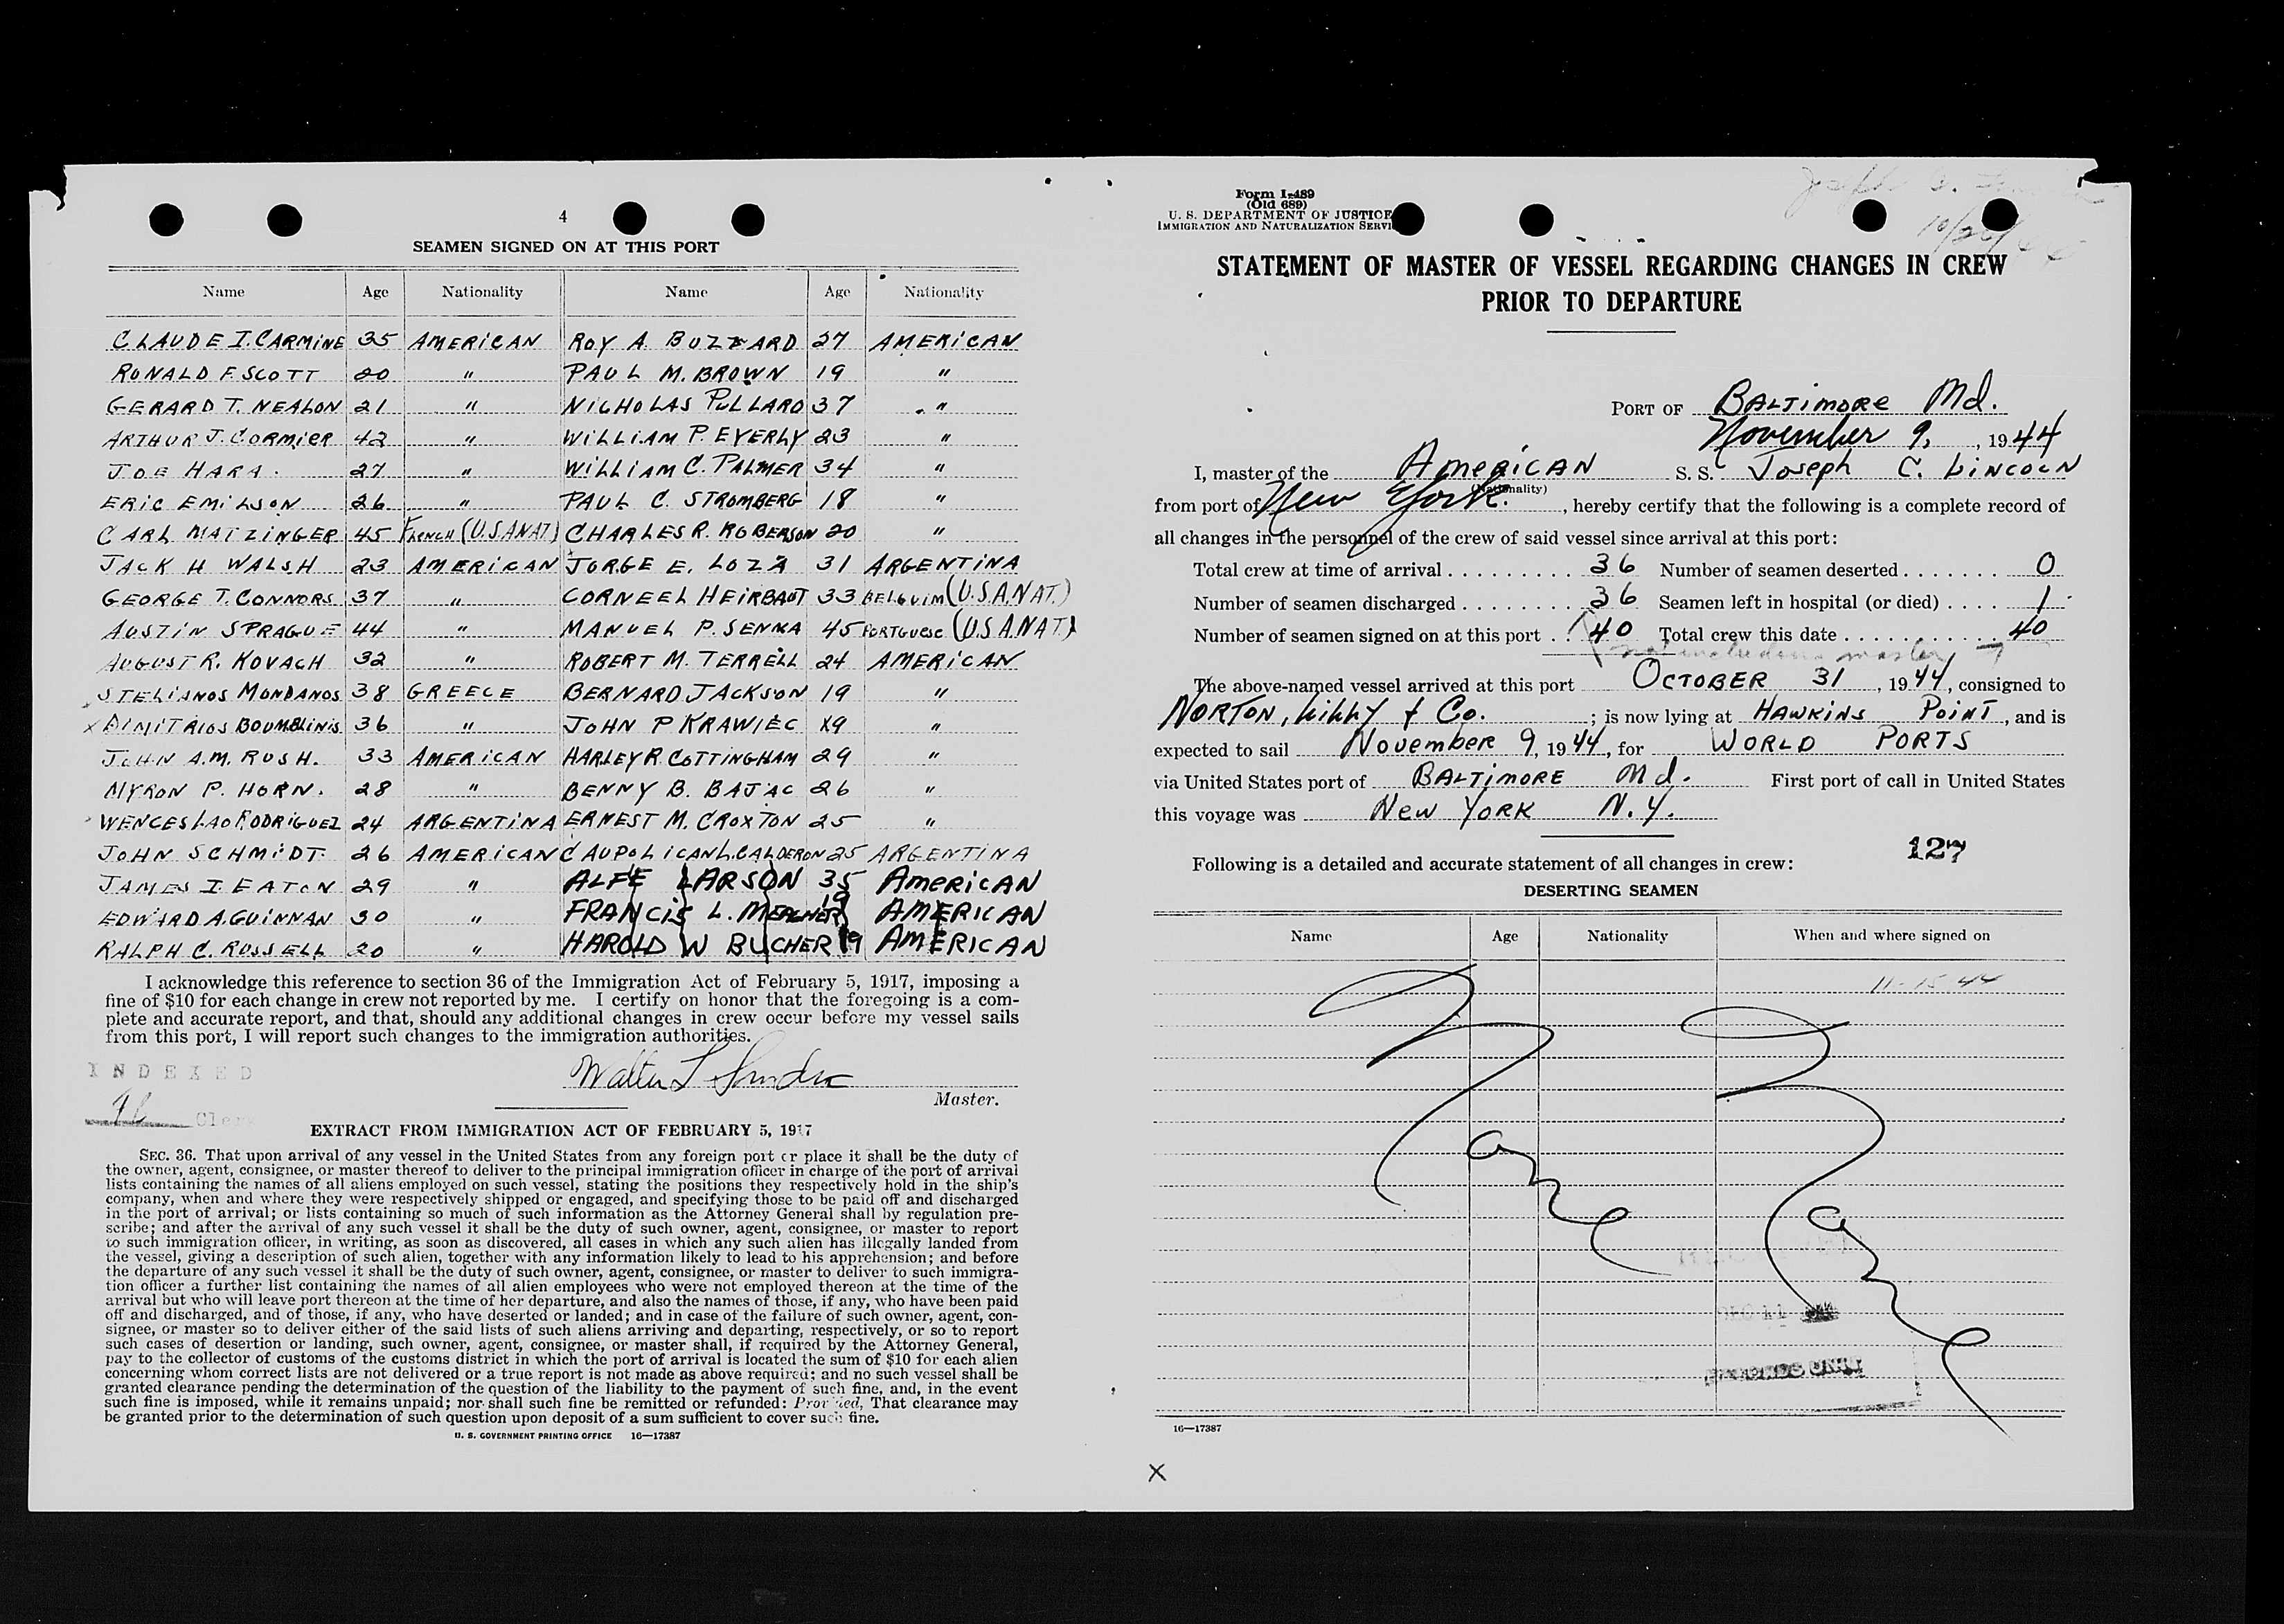 4
SEAMEN SIGNED ON AT THIS PORT
Name Age Nationality Name Age Nationality
CLAUDE I. CARMINE 35 AMERICAN ROY A. BUZZARD 27 AMERICAN
RONALD F. SCOTT 20 " PAUL M. BROWN 19 "
GERARD T. NEALON 21 " NICHOLAS PULLARO 37 "
ARTHUR J. CORMIER 42 " WILLIAM P. EYERLY 23 "
JOE HARA. 27 " WILLIAM C. PALMER 34 "
ERIC EMILSON 26 " PAUL C. STROMBERG 18 "
CARL MATZINGER 45 FRENCH (U.S.A NAT) CHARLES R. ROBERSON 20 "
JACK H WALSH 23 AMERICAN JORGE E. LOZA 31 ARGENTINA
GEORGE T. CONNORS 37 " CORNEEL HEIRBAUT 33 BELGUIM (U.S.A. NAT.)
AUSTIN SPRAGUE 44 " MANUEL P. SENKA 45 PORTGUESE (U.S.A. NAT.)
AUGUST R. KOVACH 32 " ROBERT M. TERRELL 24 AMERICAN
STELIANOS MONDANOS 38 GREECE BERNARD JACKSON 19 "
x DIMITRIOS BOUMBLINIS 36 " JOHN P KRAWIEC 19 "
JOHN A.M. RUSH. 33 AMERICAN HARLEY R. COTTINGHAM 29 "
MYRON P. HORN. 28 " BENNY B. BAJAC 26 "
WENCESLAO RODRIGUEZ 24 ARGENTINA ERNEST M. CROXTON 25 "
JOHN SCHMIDT. 26 AMERICAN CAUPOLICAN L. CALDERON 25 ARGENTINA
JAMES I EATON 29 " ALFE LARSON 35 AMERICAN
EDWARD A. GUINNAN 30 " FRANCIS L. MEAGHER 19 AMERICAN
RALPH C. RUSSELL 20 " HAROLD W BUCHER 19 AMERICAN
I acknowledge this reference to section 36 of the Immigration Act of February 5, 1917, imposing a
fine of $10 for each change in crew not reported by me. I certify on honor that the foregoing is a com-
plete and accurate report, and that, should any additional changes in crew occur before my vessel sails
from this port, I will report such changes to the immigration authorities.
INDEXED
Walter L
Master.
Clerk
EXTRACT FROM IMMIGRATION ACT OF FEBRUARY 5, 1917
SEC. 36. That upon arrival of any vessel in the United States from any foreign port or place it shall be the duty of
the owner, agent, consignee, or master thereof to deliver to the principal immigration officer in charge of the port of arrival
lists containing the names of all aliens employed on such vessel, stating the positions they respectively hold in the ship's
company, when and where they were respectively shipped or engaged, and specifying those to be paid off and discharged
in the port of arrival; or lists containing so much of such information as the Attorney General shall by regulation pre-
scribe; and after the arrival of any such vessel it shall be the duty of such owner, agent, consignee, or master to report
to such immigration officer, in writing, as soon as discovered, all cases in which any such alien has illegally landed from
the vessel, giving a description of such alien, together with any information likely to lead to his apprehension; and before
the departure of any such vessel it shall be the duty of such owner, agent, consignee, or master to deliver to such immigra-
tion officer a further list containing the names of all alien employees who were not employed thereon at the time of the
arrival but who will leave port thereon at the time of her departure, and also the names of those, if any, who have been paid
off and discharged, and of those, if any, who have deserted or landed; and in case of the failure of such owner, agent, con-
signee, or master so to deliver either of the said lists of such aliens arriving and departing, respectively, or so to report
such cases of desertion or landing, such owner, agent, consignee, or master shall, if required by the Attorney General,
pay to the collector of customs of the customs district in which the port of arrival is located the sum of $10 for each alien
concerning whom correct lists are not delivered or a true report is not made as above required; and no such vessel shall be
granted clearance pending the determination of the question of the liability to the payment of such fine, and, in the event
such fine is imposed, while it remains unpaid; nor shall such fine be remitted or refunded: Provided, That clearance may
be granted prior to the determination of such question upon deposit of a sum sufficient to cover such fine.
U. S. GOVERNMENT PRINTING OFFICE 16—17387
Form I-489
(Old 689)
U. S. DEPARTMENT OF JUSTICE
IMMIGRATION AND NATURALIZATION SERVI
STATEMENT OF MASTER OF VESSEL REGARDING CHANGES IN CREW
PRIOR TO DEPARTURE
PORT OF BALTIMORE Md.
November 9, , 1944
I, master of the AMERICAN S. S. JOSEPH C. LINCOLN
(Nationality)
from port of New York. , hereby certify that the following is a complete record of
all changes in the personnel of the crew of said vessel since arrival at this port:
Total crew at time of arrival . . . . . . . . . . 36 Number of seamen deserted . . . . . . . 0
Number of seamen discharged . . . . . . . . 36 Seamen left in hospital (or died) . . . . 1
Number of seamen signed on at this port . . 40 Total crew this date . . . . . . . . . . . . 40
not including master
The above-named vessel arrived at this port OCTOBER 31 , 1944, consigned to
NORTON, LILLY & Co. ; is now lying at HAWKINS POINT , and is
expected to sail November 9, 1944, for WORLD PORTS
via United States port of BALTIMORE Md. First port of call in United States
this voyage was NEW YORK N.Y.
127
Following is a detailed and accurate statement of all changes in crew:
DESERTING SEAMEN
Name Age Nationality When and where signed on
11-15-44
None None
DEC 11
RECORDS UNIT
16—17387
x